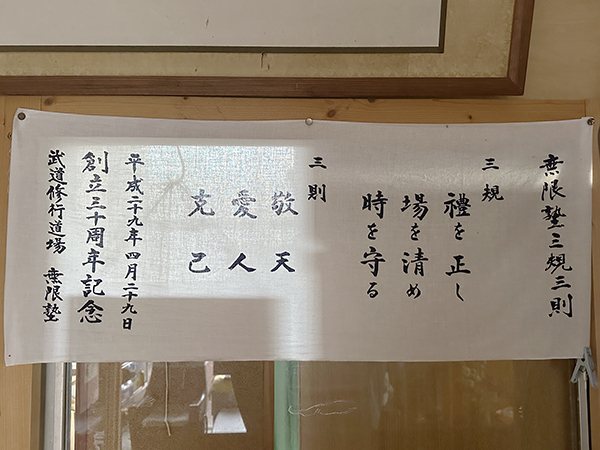 無限塾三規三則
三規
禮を正し
場を清め
時を守る
三則
敬天
愛人
克己
平成二十九年四月二十九日
創立三十周年記念
武道修行道場 無限塾